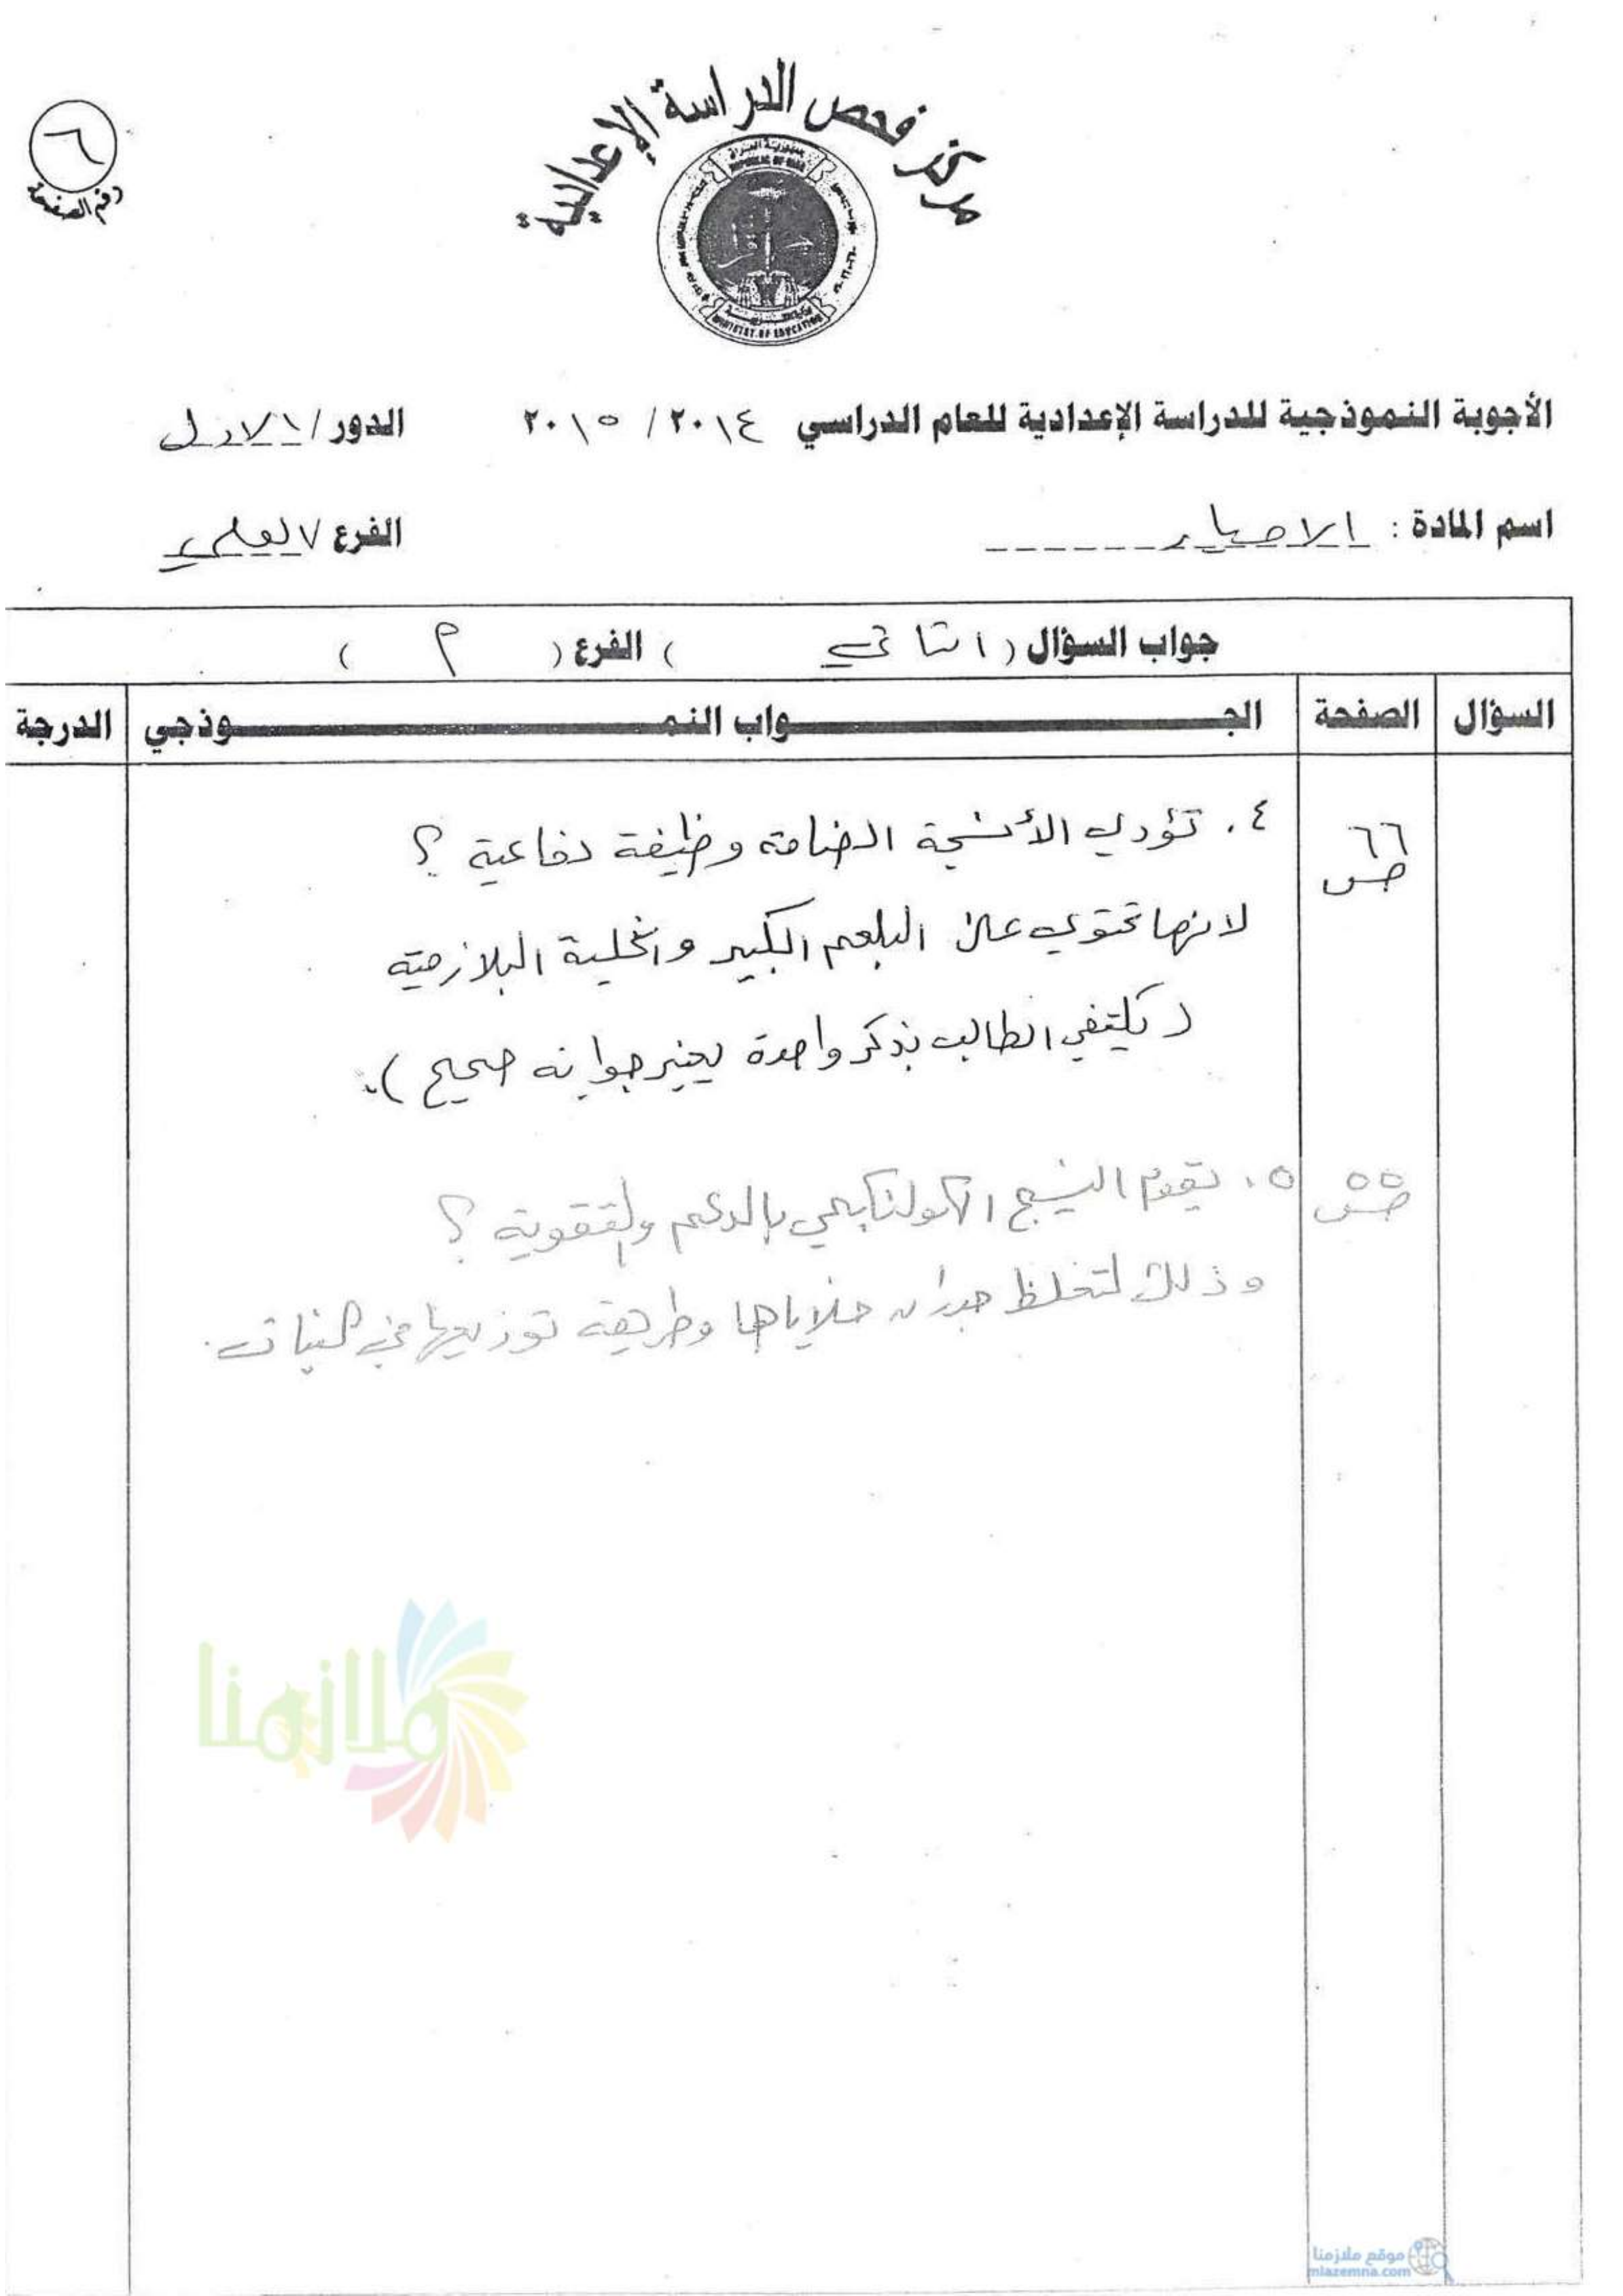 مركز فحص الدراسة الإعدادية
٦
رقم الصفحة
جمهورية العراق
REPUBLIC OF IRAQ
MINISTRY OF EDUCATION
الأجوبة النموذجية للدراسة الإعدادية للعام الدراسي ٢٠١٤ / ٢٠١٥ الدور / الاول
اسم المادة : الاحياء الفرع / العلمي
جواب السؤال ( الثاني ) الفرع ( م )
السؤال الصفحة الجـواب النمـوذجي الدرجة
ص ٦٦ ٤. تؤدي الأنسجة الضامة وظيفة دفاعية ؟
لانها تحتوي على البلعم الكبير والخلية البلازمية
( يكتفي الطالب بذكر واحدة يعتبر جوابه صحيح ).
ص ٥٥ ٥. يقوم النسيج الكولنكيمي بالدعم والتقوية ؟
وذلك لتغلظ جدران خلاياها وطريقة توزيعها في النبات.
ملازمنا
موقع ملازمنا
mlazemna.com